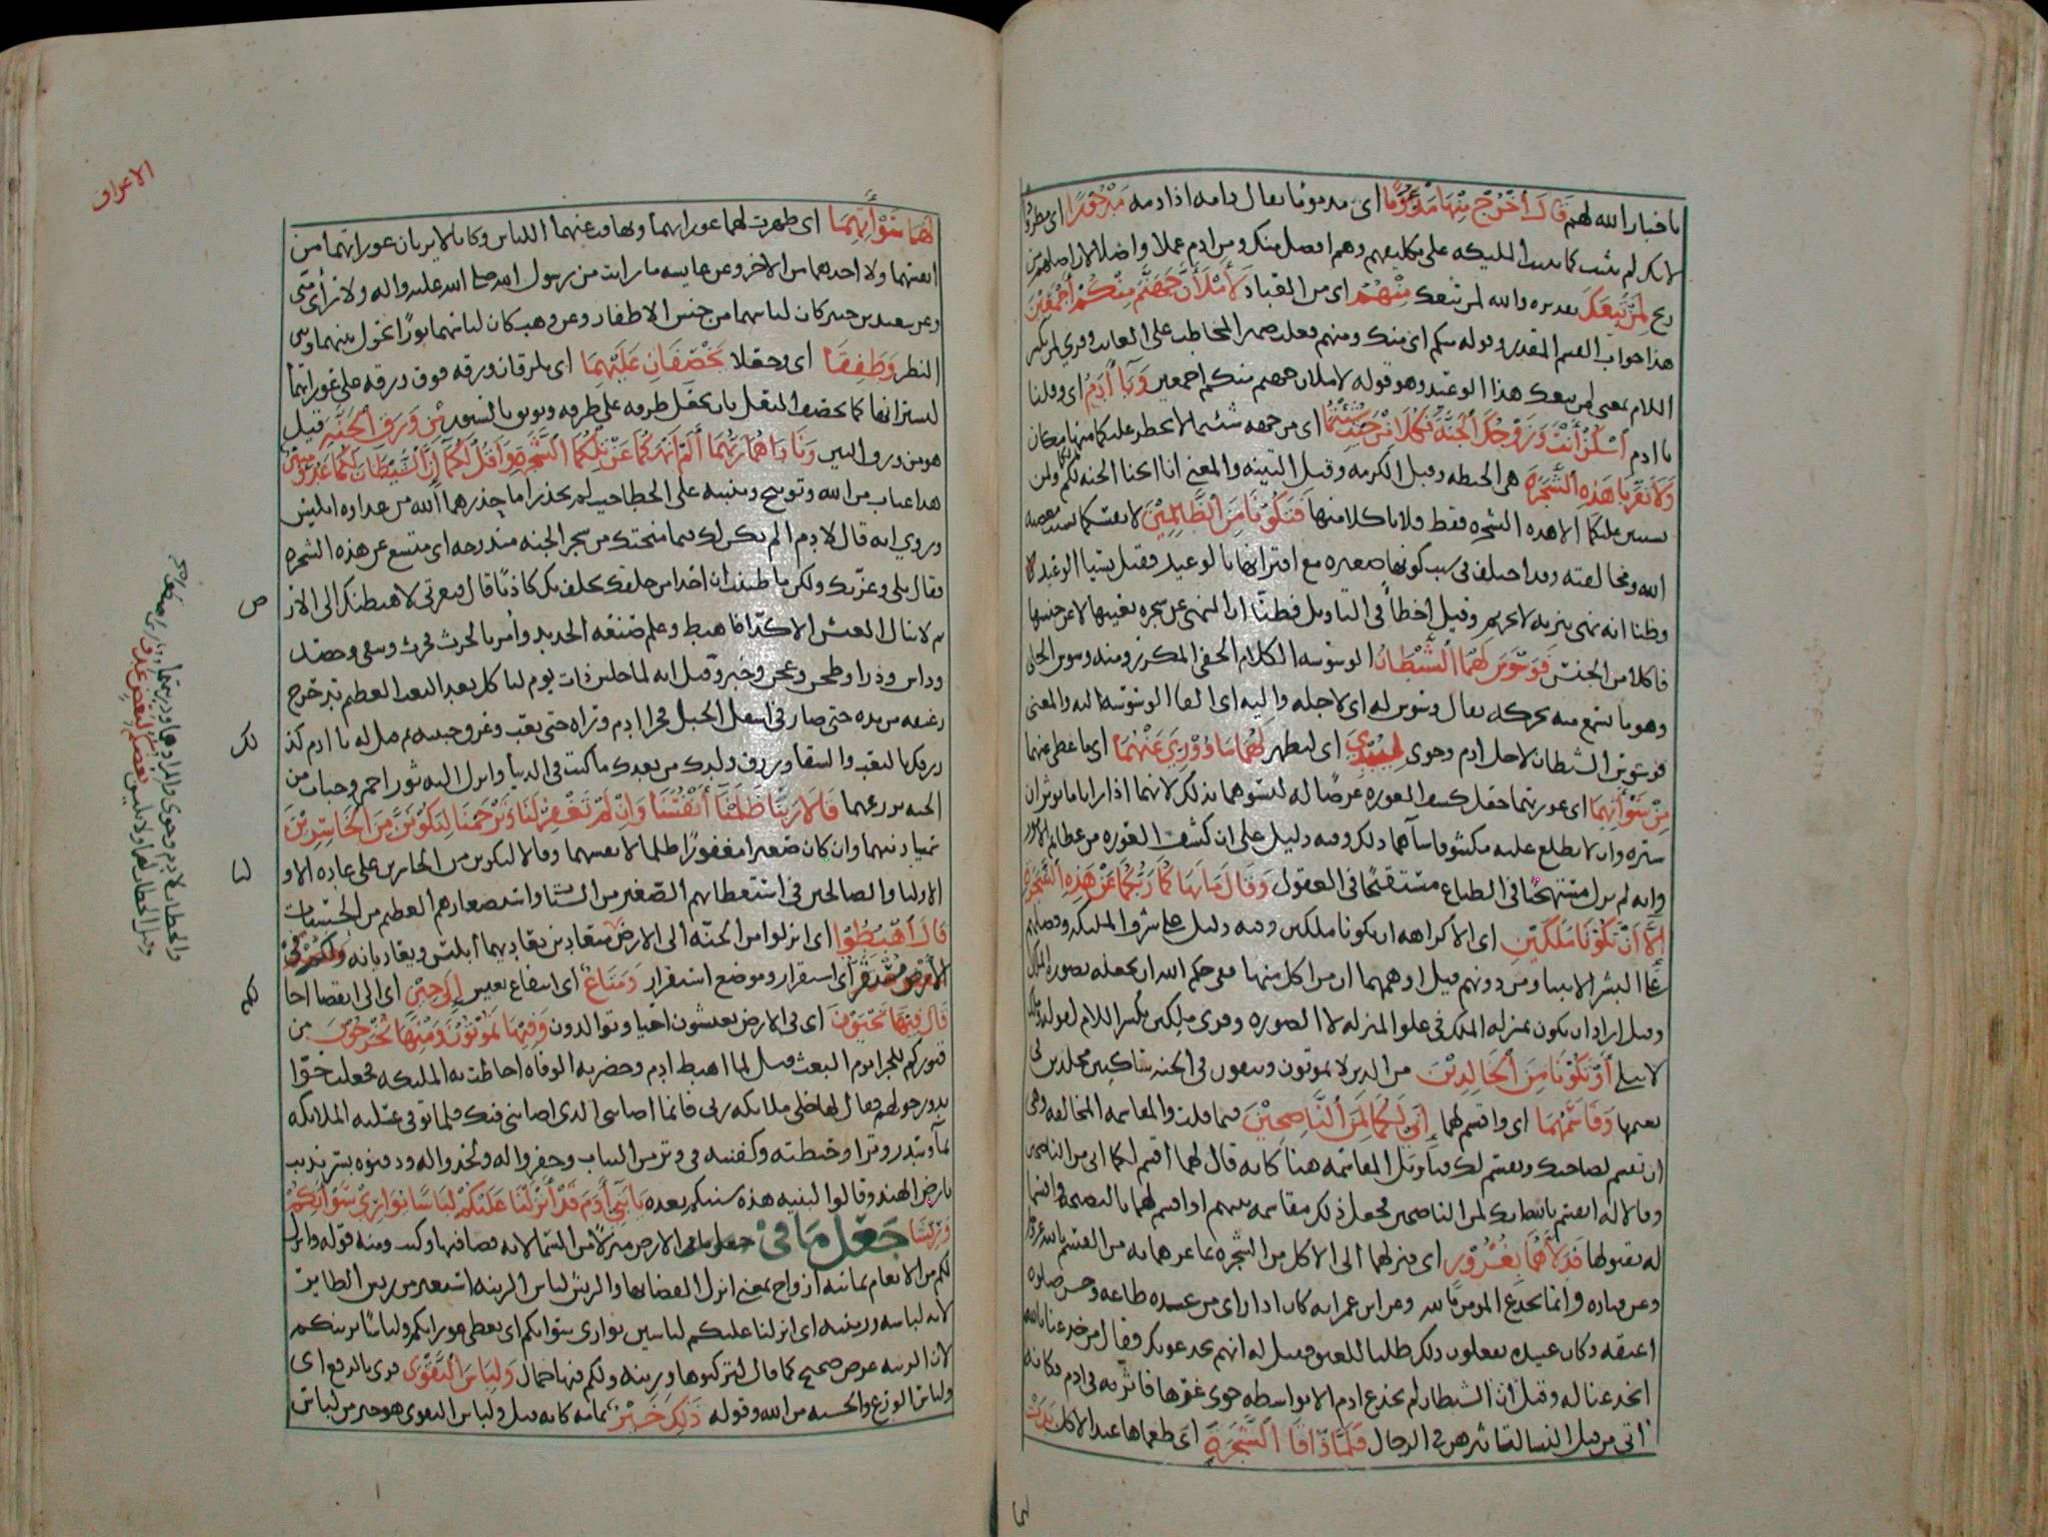 باخبار الله لهم قَالَ اُخْرُجْ مِنْهَا مَذْءُومًا اى مذموما يقال ذامه اذا ذمه مَدْحُورًا اى مطرودا
لَمَنْ تَبِعَكَ تقديره والله لمن تبعك مِنْهُمْ اى من العباد لَأَمْلَأَنَّ جَهَنَّمَ مِنْكُمْ أَجْمَعِيْنَ
هذا جواب القسم المقدر وقوله منكم اى منك ومنهم فغلب ضمير المخاطب على الغايب وقرى لمن بكسر
اللام بمعنى لمن تبعك هذا الوعيد وهو قوله لاملان جهنم منكم اجمعين وَيَا أَدَمُ اى وقلنا
يا ادم اُسْكُنْ أَنْتَ وَزَوْجُكَ الْجَنَّةَ فَكُلَا مِنْ حَيْثُ شِئْتُمَا اى من جهه شئتما لا يحظر عليكما منها مكان
وَلَا تَقْرَبَا هَذِهِ الشَّجَرَةَ هى الحنطه وقيل الكرمه وقيل التينه والمعنى انا ابحنا الجنه لكم
الا هذه الشجره فقط فلا تاكلا منها فَتَكُوْنَا مِنَ الظَّالِمِيْنَ
الله ومخالفته وقد اختلف فى سبب كونها صغيره مع اقترانها بالوعيد فقيل نسيا الوعيد
وظنا انه نهى تنزيه لا تحريم وقيل اخطأ فى التاويل فظنّا ان النهى عن شجره بعينها لا عن جنسها
فاكلا من الجنس فَوَسْوَسَ لَهُمَا الشَّيْطَانُ الوسوسه الكلام الخفى المكرر ومنه وسوس الحلى
وهو ما يسمع منه بحركه يقال وسوس له اى لاجله واليه اى القا الوسوسه اليه والمعنى
فوسوس الشيطان لاجل ادم وحوى لِيُبْدِيَ اى ليظهر لَهُمَا مَا وُوْرِيَ عَنْهُمَا اى ما غطى عنهما
مِنْ سَوْأَتِهِمَا اى عورتهما جعل كشف العوره غرضًا له ليسوهما بذلك لانهما اذا رايا ما يوثران
ستره وان لا يطلع عليه مكشوفا سآهما ذلك وفيه دليل على ان كشف العوره من عظايم الامور
وانه لم يزل مستهجنًا فى الطباع مستقبحًا فى العقول وَقَالَ مَا نَهَاكُمَا رَبُّكُمَا عَنْ هَذِهِ الشَّجَرَةِ
إِلَّا أَنْ تَكُوْنَا مَلَكَيْنِ اى الا كراهه ان يكونا ملكين وفيه دليل على شرف المليكه وفضلهم
على البشر الانبيا ومن دونهم قيل اوهمهما ان من اكل منها ففى حكم الله ان يجعله بصوره الملك
وقيل اراد ان يكون بمنزله الملك فى علو المنزله لا الصوره وقرى ملكين بكسر اللام لقوله وملك
لا يبلى أَوْ تَكُوْنَا مِنَ الْخَالِدِيْنَ من الذين لا يموتون ويبقون فى الجنه ساكنين مخلدين فى
نعيمها وَقَاسَمَهُمَا اى واقسم لهما إِنِّي لَكُمَا لَمِنَ النَّاصِحِيْنَ فيما قلت والمقاسمه المخالفه وهى
ان تقسم لصاحبك ويقسم لك وتاويل المقاسمه هنا كانه قال لهما اقسم لكما انى من الناصحين
وقالا له اتقسم بالله انك لمن الناصحين فجعل ذلك مقاسمه بينهم او اقسم لهما بالنصيحه واقسما
له بقبولها فَدَلَّاهُمَا بِغُرُوْرٍ اى فنزلهما الى الاكل من الشجره بما غرهما به من القسم بالله
وعن قتاده وانما يخدع المومن بالله وعن ابن عمر انه كان اذا راى من عبيده طاعه وحسن صلوه
اعتقه وكان عبيده يفعلون ذلك طلبا للعتق فقيل له انهم يخدعونك فقال من خدعنا بالله
انخدعنا له وقيل ان الشيطان لم يخدع ادم الا بواسطه حوى غرها فاثر به فى ادم فكانه
اتى من قبل النسا لتاثيرهن فى الرجال فَلَمَّا ذَاقَا الشَّجَرَةَ اى طعماها عند الاكل بَدَتْ
لهما
الاعراف
لَهُمَا سَوْأَتُهُمَا اى ظهرت لهما عوراتهما وتهافت عنهما اللباس وكانا لا يريان عوراتهما من
انفسهما ولا احدهما من الاخر وعن عايشه ما رايت من رسول الله صلى الله عليه واله ولا رأى منّى
وعن سعيد بن جبير كان لباسهما من جنس الاظفار وعن وهب كان لباسهما نورًا يحول بينهما وبين
النظر وَطَفِقَا اى وجعلا يَخْصِفَانِ عَلَيْهِمَا اى يلزقان ورقه فوق ورقه على عوراتهما
ليستترا بها كما يخصف النعل بان يجعل طرفه على طرفه ويوثق بالسيور مِنْ وَرَقِ الْجَنَّةِ قيل
هو من ورق التين وَنَادَاهُمَا رَبُّهُمَا أَلَمْ أَنْهَكُمَا عَنْ تِلْكُمَا الشَّجَرَةِ وَأَقُلْ لَكُمَا إِنَّ الشَّيْطَانَ لَكُمَا عَدُوٌّ مُبِيْنٌ
هذا عتاب من الله وتوبيخ وتنبيه على الخطا حيث لم يحذرا ما حذرهما الله من عداوه ابليس
وروي انه قال لادم الم يكن لك فيما منحتك من شجر الجنه مندوحه اى متسع عن هذه الشجره
فقال بلى وعزتك ولكن ما ظننت ان احدا من خلقك يحلف بك كاذبًا قال فبعزتى لاهبطنك الى الارض
ثم لا ينال العيش الا كدّا فاهبط وعلم صنعه الحديد وأمر بالحرث فحرث وسقى وحصد
وداس وذرا وطحن وعجن وخبز وقيل انه لما جلس ذات يوم لياكل بعد التعب العظيم تدحرج
رغيفه من يده حتى صار فى اسفل الجبل فجرا ادم وراه حتى تعب وعرق جبينه ثم قيل له يا ادم كذ
ورزق ولدك من بعدك ما كنت فى الدنيا وانزل اليه ثور احمر وحبات من
الجنه يزرعهما قَالَا رَبَّنَا ظَلَمْنَا أَنْفُسَنَا وَإِنْ لَمْ تَغْفِرْ لَنَا وَتَرْحَمْنَا لَنَكُوْنَنَّ مِنَ الْخَاسِرِيْنَ
سميا ذنبهما وان كان صغيرا مغفورًا ظلما لانفسهما وقالا لنكونن من الخاسرين على عاده الاو
الاوليا والصالحين فى استعظامهم الصغير من السيئات واستصغارهم العظيم من الحسنات
قَالَ اهْبِطُوْا اى انزلوا من الجنّه الى الارض متعادين يعاديهما ابليس ويعاديانه وَلَكُمْ فِي
الْأَرْضِ مُسْتَقَرٌّ اى استقرار وموضع استقرار وَمَتَاعٌ اى انتفاع بعيش إِلَى حِيْنٍ اى الى انقضا اجا
قَالَ فِيْهَا تَحْيَوْنَ اى فى الارض تعيشون احيا وتوالدون وَفِيْهَا تَمُوْتُوْنَ وَمِنْهَا تُخْرَجُوْنَ من
قبوركم للجزا يوم البعث وقيل لما اهبط ادم وحضرته الوفاه احاطت به المليكه فجعلت حوّا
تدور حولهم فقال لها خلى ملايكه ربى فانما اصابنى الذى اصابنى فيك فلما توفى غسلته الملايكه
بمآ وسدر وترا وحنطته وكفنته فى وتر من الثياب وحفروا له ولحدوا له ودفنوه بسرنديب
بارض الهند وقالوا لبنيه هذه سنتكم بعده يَا بَنِي أَدَمَ قَدْ أَنْزَلْنَا عَلَيْكُمْ لِبَاسًا يُوَارِيْ سَوْأَتِكُمْ
وَرِيْشًا جَعَلَ مَا فِيْ جعل ما فى الارض منزلًا من السما لانه قضا فيها وكتب ومنه قوله وانزل
لكم من الانعام ثمانيه ازواج بمعنى انزل القضا بها والريش لباس الزينه استعير من ريش الطاير
لانه لباسه وزينته اى انزلنا عليكم لباسين يوارى سوأتكم اى يغطى عوراتكم ولباسًا يزينكم
لان الزينه غرض صحيح كما قال لتركبوها وزينه ولكم فيها جمال وَلِبَاسُ التَّقْوَى قرى بالرفع اى
ولباس الورع والخشيه من الله وقوله ذَلِكَ خَيْرٌ كانه قيل ولباس التقوى هو خير من لباس
ص
لك
لنا
لكم
والخطاب لادم وحوى والمراد هما وذريتهما
وقيل الخطاب لهما ولابليس